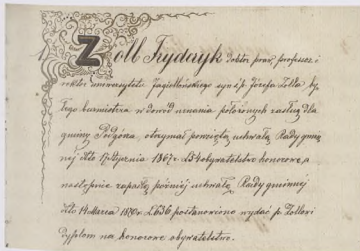 Zoll Fryderyk doktor praw, professor i
rektor uniwersytetu Jagiellońskiego syn ś.p. Józefa Zolla by-
łego burmistrza w dowód uznania położonych zasług dla
gminy Podgórza, otrzymał powziętą uchwałą Rady gmin
nej dto 17 Stycznia 1867 r. L 54 obywatelstwo honorowe, a
następnie zapadłą później uchwałą Rady gminnej
dto 14 Marca 1870 r. L 636 postanowiono wydać p. Zollowi
dyplom na honorowe obywatelstwo.